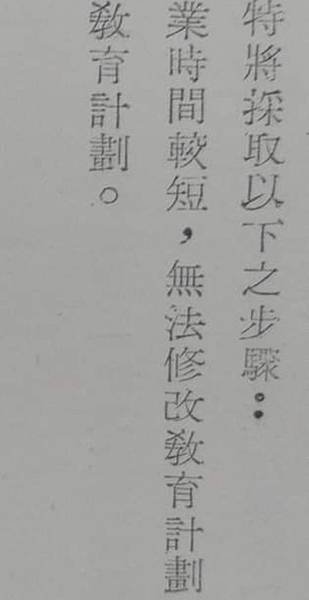 特將採取以下之步驟：
業時間較短，無法修改教育計劃
教育計劃。